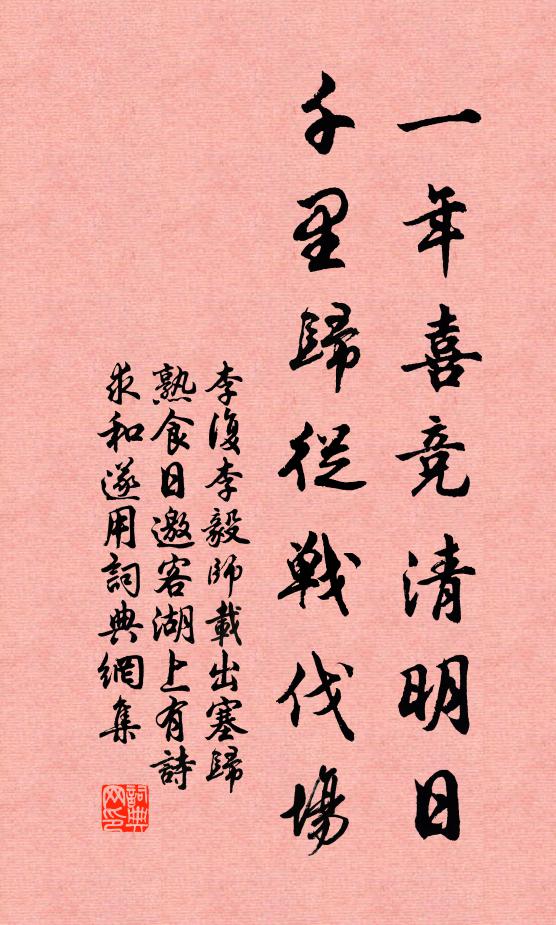 一年喜竞清明日
千里歸從戰伐場
李復李毅師載出塞歸
熟食日邀客湖上有詩
求和遂用詞典網集
詞典网印